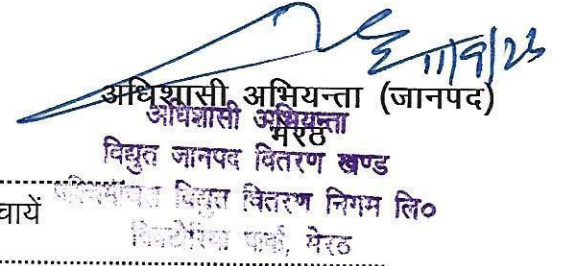 11/9/23
अधिशासी अभियन्ता (जानपद)
मेरठ
अधिशासी अभियन्ता
विद्युत जानपद वितरण खण्ड
पश्चिमांचल विद्युत वितरण निगम लि०
वायें
विक्टोरिया पार्क, मेरठ